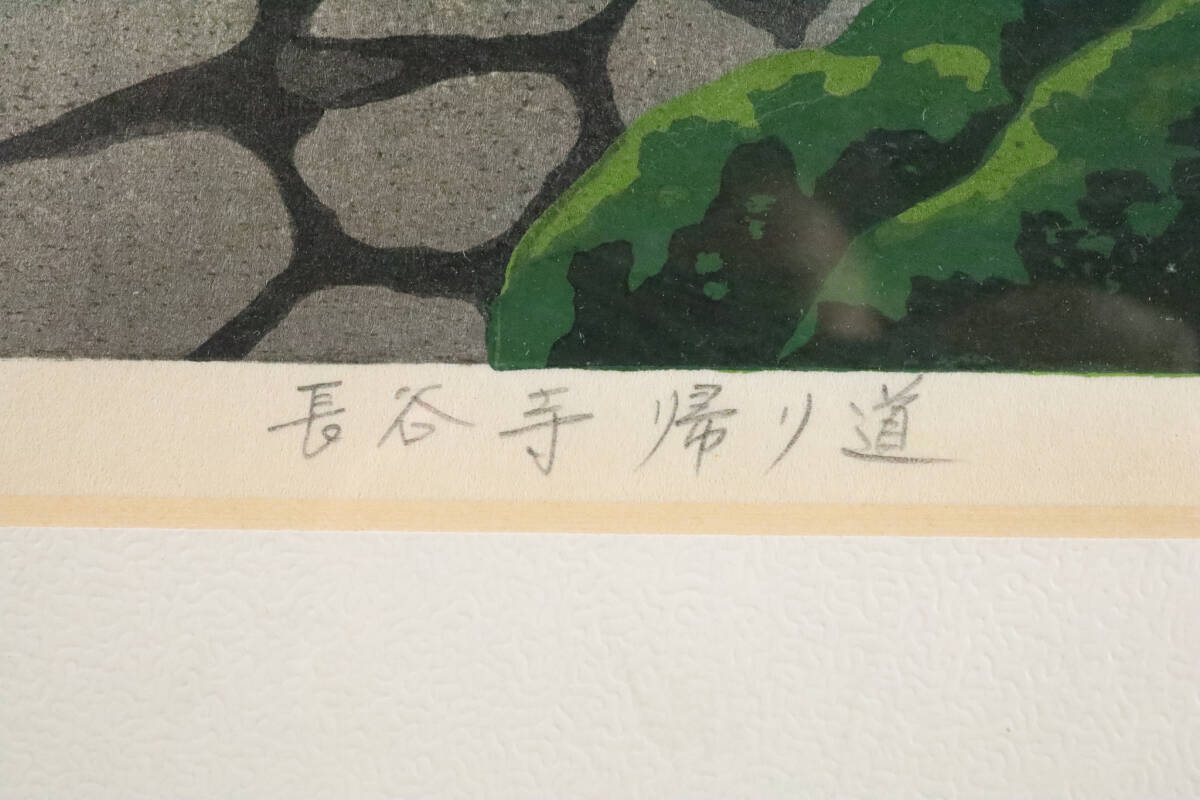 長谷寺帰り道